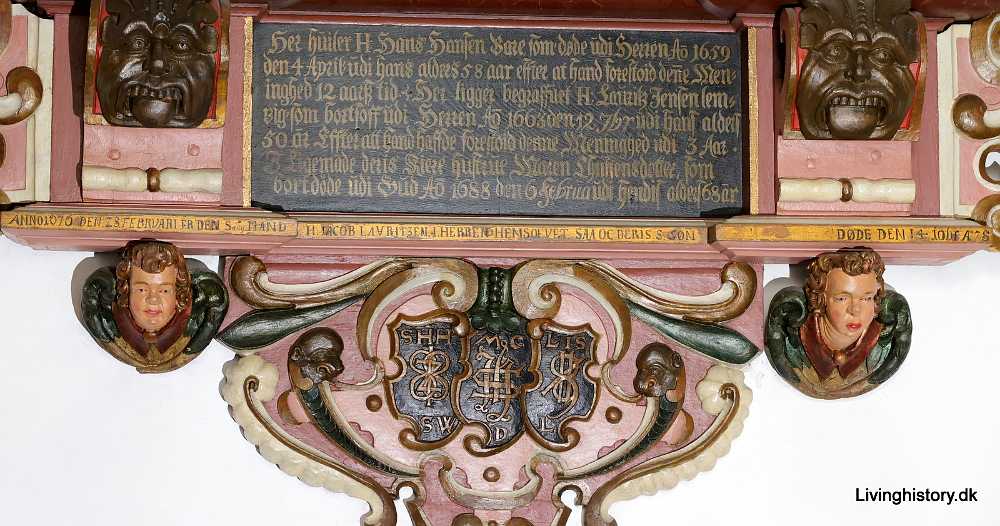 Her huiler H. Hans Hansen Bare som døde udi Herren Aõ 1659
den 4 April udi hans alders 58 aar effter at hand forestoed denne Men-
inghed 12 aarß tid
Her ligger begraffuet H. Lauritz Jensen lem-
vig som bortsoff udi Herren Aõ 1663 den 12. 7br udi hans alders
50 åt Effter att hand haffde forestoed denne Meninghed udi 3 Aar.
deris Kiere hustrue Maren som
bort døde udi Gud Aõ 1688 den 6 februa udi hendis alders 68 år
ANNO 1676 DEN 28 FEBRUARI ER DEN S: MAND
H. IACOB LAVRITSEN I HERREN HENSOEVET SAA OC DERIS S. SØN
DØDE DEN 14
SHH
M G
LIS
SW
D
L
Livinghistory.dk